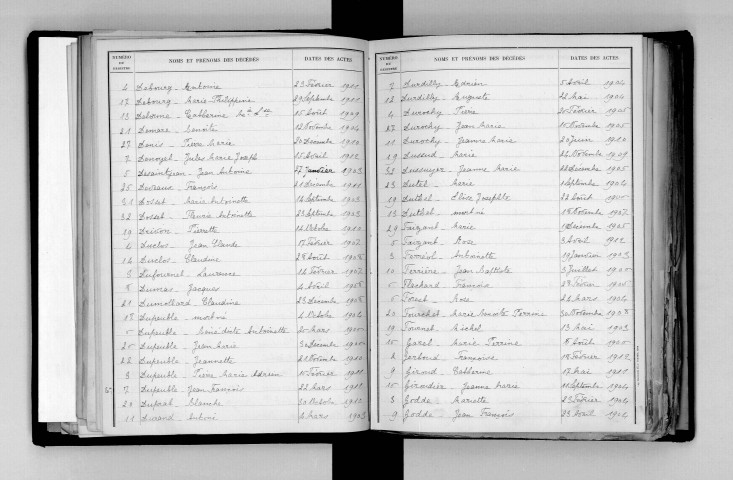 NUMÉRO DE REGISTRE NOMS ET PRÉNOMS DES DÉCÉDÉS DATES DES ACTES
2 Debourg - Antoine 23 Février 1901
17 Debourg - Marie Philippine 29 Septembre 1901
13 Delorme - Catherine 15 Août 1909
21 Demare - Benoite 12 Novembre 1904
27 Denis - Pierre Marie 20 Décembre 1910
7 Denoyel - Jules Marie Joseph 15 Avril 1902
5 Desaintjean - Jean Antoine 27 Janvier 1903
25 Devraux - François 21 Décembre 1901
31 Dosset - Marie Antoinette 14 Septembre 1903
32 Dosset - Fleurie Antoinette 23 Septembre 1903
19 Drivon - Pierrette 14 Octobre 1910
4 Duclos - Jean Claude 17 Février 1902
14 Duclos - Claudine 28 Août 1908
5 Dufournel - Laurence 14 Février 1902
8 Dumas - Jacques 4 Avril 1908
21 Dumollard - Claudine 23 Décembre 1908
18 Dupeuble - mort né 4 Octobre 1904
5 Dupeuble - Antoinette 10 Mars 1900
25 Dupeuble - Jean Marie 30 Décembre 1900
22 Dupeuble - Jeannette 21 Novembre 1910
3 Dupeuble - Pierre Marie Adrien 15 Février 1911
7 Dupeuble - Jean François 22 Mars 1911
20 Duprat - Blanche 20 Octobre 1912
11 Durand - Antoine 4 Mars 1903
NUMÉRO DE REGISTRE NOMS ET PRÉNOMS DES DÉCÉDÉS DATES DES ACTES
7 Durdilly - Adrien 5 Avril 1904
12 Durdilly - Auguste 22 Mai 1904
4 Durochy - Pierre 20 Février 1905
27 Durochy - Jean Marie 15 Novembre 1905
11 Durochy - Jeanne Marie 20 Juin 1910
19 Dussud - Marie 24 Novembre 1909
33 Dussuyer - Jeanne Marie 22 Décembre 1905
23 Dutel - Marie 1 Septembre 1904
19 Duthel - Josephte 22 Août 1900
13 Duthel - mort né 18 Novembre 1907
29 Faizant - Marie 1 Décembre 1905
5 Faizant - Rose 3 Avril 1912
3 Ferréol - Antoinette 19 Janvier 1903
10 Ferrière - Jean Baptiste 3 Juillet 1905
5 Flachard - François 28 Février
5 Fouet - Rose 24 Mars 1904
20 Fourchet - Marie Benoite Perrine 30 Novembre 1908
19 Fournet - Michel 13 Mai 1903
15 Garel - Marie Perrine 8 Août 1900
4 Gerboud - Françoise 18 Février 1912
9 Giroud - Catherine 17 Mai 1911
15 Girondier - Jeanne Marie 11 Septembre 1904
3 Godde - Mariette 23 Février 1904
9 Godde - Jean François 23 Avril 1904